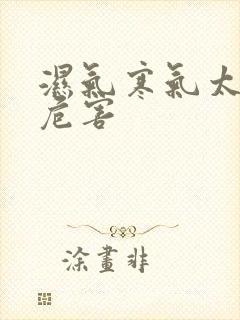 濕氣寒氣太
危害
涂畫非